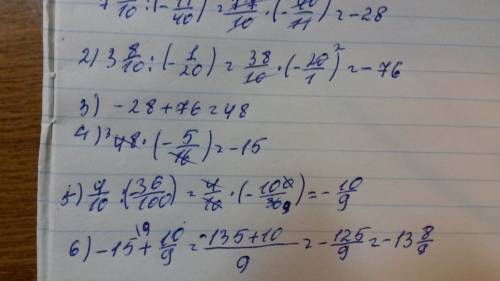 7 7/10 : (-11/40) = 77/10 · (-40/11) = -28
2) 3 8/10 : (-1/20) = 38/10 · (-20/1)² = -76
3) -28+76=48
4) ³48 · (-5/16) = -15
5) 4/10 : (36/100) = 4/10 · (-100/36 9) = -10/9
6) -15 ¹⁹+ 10/9 = -135+10/9 = -125/9 = -13 8/9